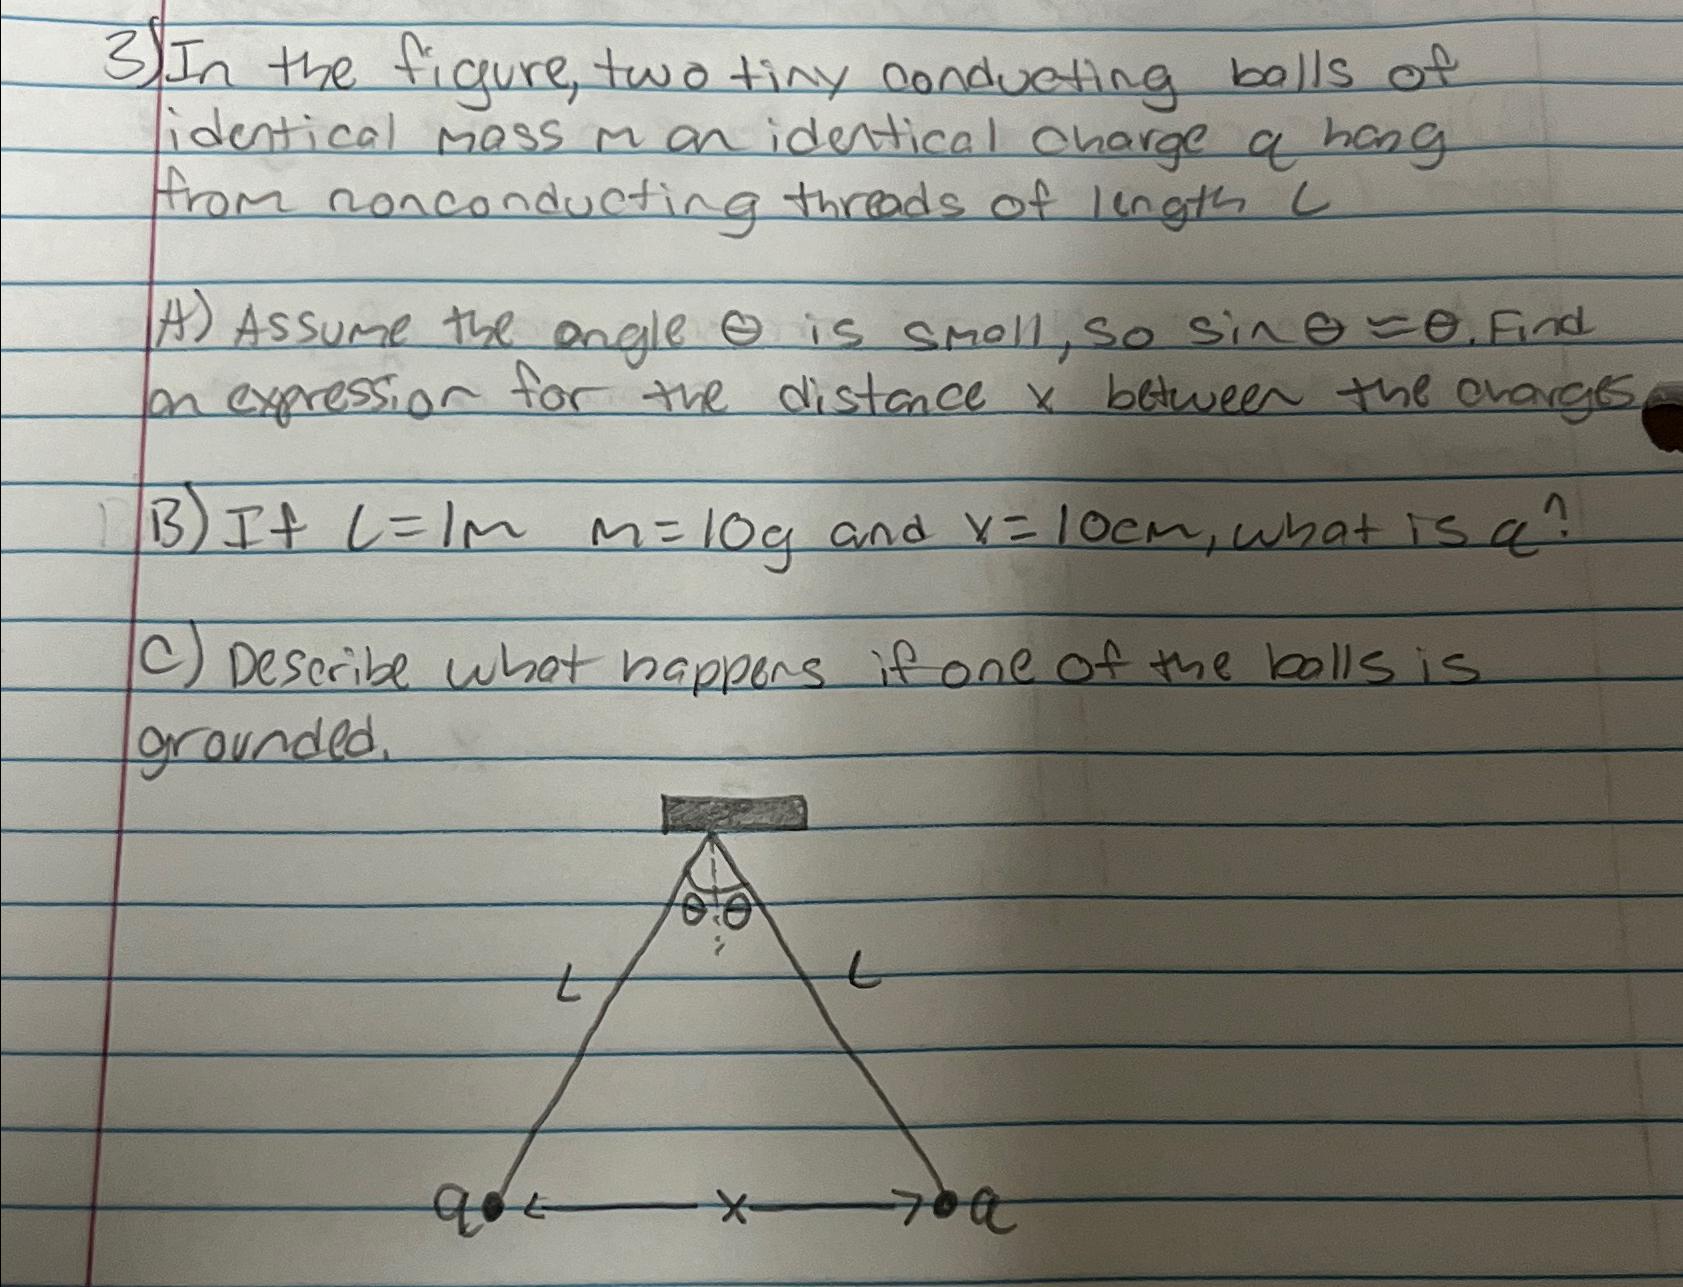 3) In the figure, two tiny conducting balls of
identical mass m an identical charge q hang
from nonconducting threads of length L
A) Assume the angle θ is small, so sin θ ≈ θ. Find
an expression for the distance x between the charges
B) If L = 1m m = 10g and x = 10cm, what is q?
C) Describe what happens if one of the balls is
grounded.
θ θ
L L
q x q